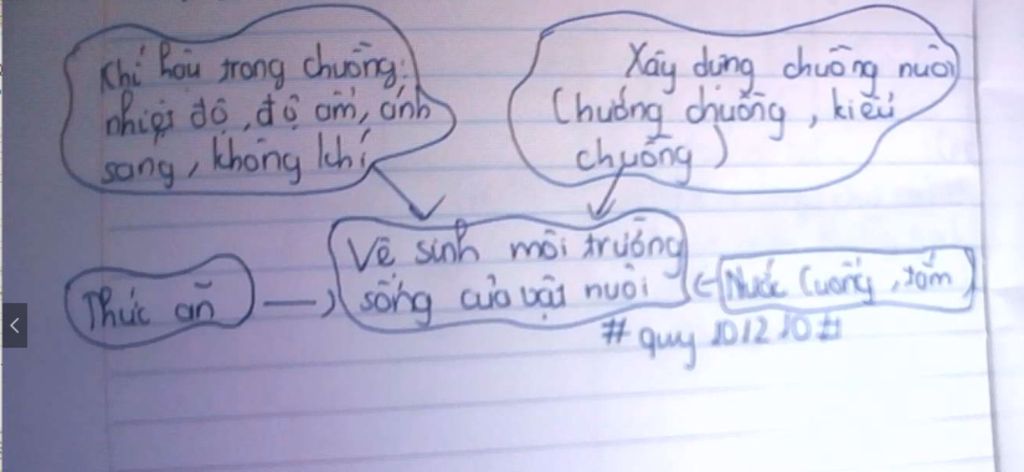 Khí hậu trong chuồng:
nhiệt độ, độ ẩm, ánh
sang, không khí
Xây dựng chuồng nuôi
(hướng chuồng, kiểu
chuồng)
Vê sinh môi trường
sống của vật nuôi
Thức ăn
Nước (uống, tắm)
# quy